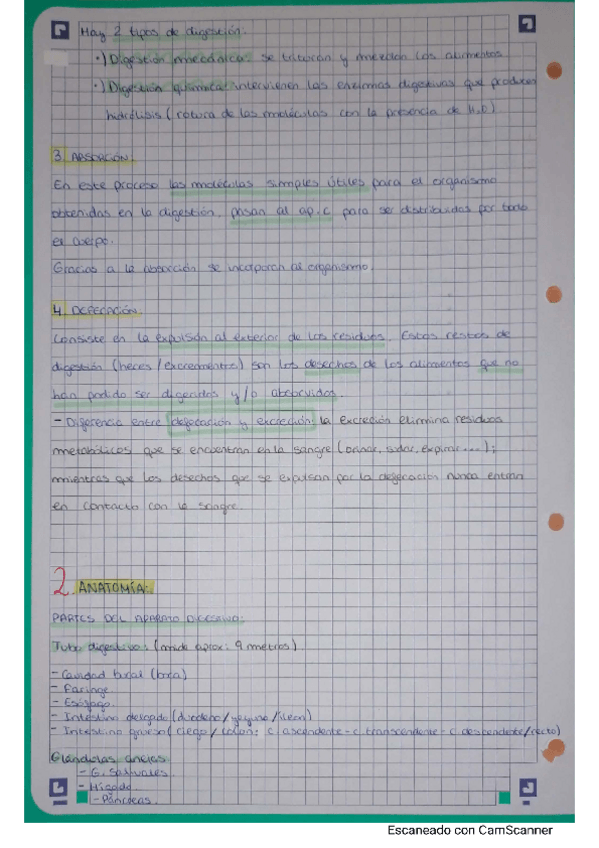 Hay 2 tipos de digestión:
·) Digestión mecánica: se trituran y mezclan los alimentos
·) Digestión química: intervienen las enzimas digestivas que producen
hidrólisis (rotura de las moléculas con la presencia de H2O)
3. ABSORCIÓN:
En este proceso las moléculas simples útiles para el organismo
obtenidas en la digestión, pasan al ap.c para ser distribuidas por todo
el cuerpo.
Gracias a la absorción se incorporan al organismo.
4. DEFECACIÓN.
Consiste en la expulsión al exterior de los residuos. Estos restos de
digestión (heces/excrementos) son los desechos de los alimentos que no
han podido ser digeridos y/o absorvidos.
- Diferencia entre defecación y excreción: la excreción elimina residuos
metabólicos que se encuentran en la sangre (orinar, sudar, expirar...);
mientras que los desechos que se expulsan por la defecación nunca entran
en contacto con la sangre.
2. ANATOMÍA:
PARTES DEL APARATO DIGESTIVO:
Tubo digestivo: (mide aprox: 9 metros)
- Cavidad bucal (boca)
- Faringe
- Esófago
- Intestino delgado (duodeno/yeyuno/íleon)
- Intestino grueso (ciego/colon: c. ascendente - c. transcendente - c. descendente/recto)
Glándulas anejas
- G. Salivales
- Hígado
- Páncreas.
Escaneado con CamScanner